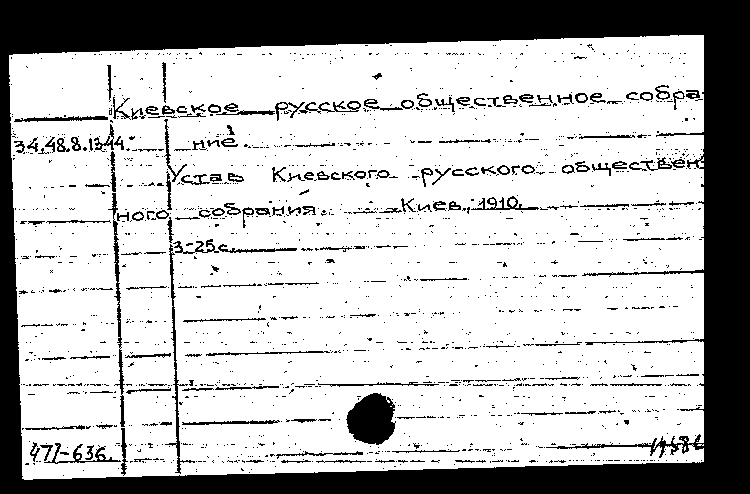 Киевское русское общественное собра
34.48.8.1344. ние.
Устав Киевского русского обществен
ного собрания. Киев, 1910.
3-25с.
477-636.